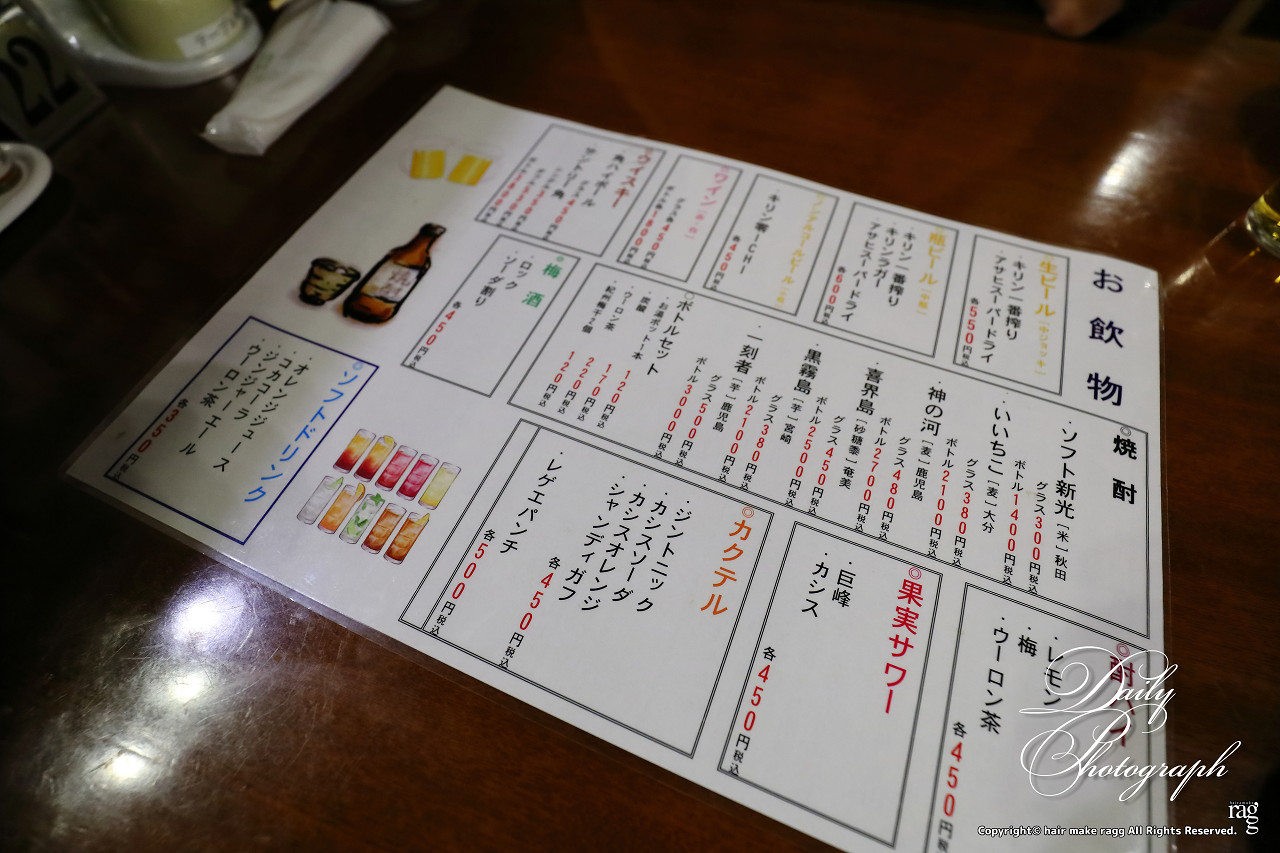 お飲物
生ビール [中ジョッキ]
・キリン一番搾り
・アサヒスーパードライ
各550円税込
瓶ビール [中瓶]
・キリン一番搾り
・キリンラガー
・アサヒスーパードライ
各600円税込
ノンアルコールビール
・キリン零ICHI
各450円税込
◎ワイン
グラス各450円税込
ボトル各1800円税込
◎ウイスキー
角ハイボール
グラス450円税込
サントリー角
◎焼酎
・ソフト新光 [米] 秋田
グラス300円税込
ボトル1400円税込
・いいちこ [麦] 大分
グラス380円税込
ボトル2100円税込
・神の河 [麦] 鹿児島
グラス480円税込
ボトル2700円税込
・喜界島 [砂糖黍] 奄美
グラス450円税込
ボトル2500円税込
・黒霧島 [芋] 宮崎
グラス380円税込
ボトル2100円税込
・一刻者 [芋] 鹿児島
グラス500円税込
ボトル3000円税込
◎ボトルセット
・お湯ポット一本
120円税込
・炭酸
170円税込
・ウーロン茶
220円税込
・紀州梅干2個
120円税込
◎梅酒
・ロック
・ソーダ割り
各450円税込
◎酎ハイ
・レモン
・梅
・ウーロン茶
各450円
◎果実サワー
・巨峰
・カシス
各450円税込
◎カクテル
・ジントニック
・カシスソーダ
・カシスオレンジ
・シャンディガフ
各450円税込
・レゲエパンチ
各500円税込
◎ソフトドリンク
・オレンジジュース
・コカコーラ
・ジンジャーエール
・ウーロン茶
各350円税込
22
Daily
Photograph
ragg
Copyright© hair make ragg All Rights Reserved.